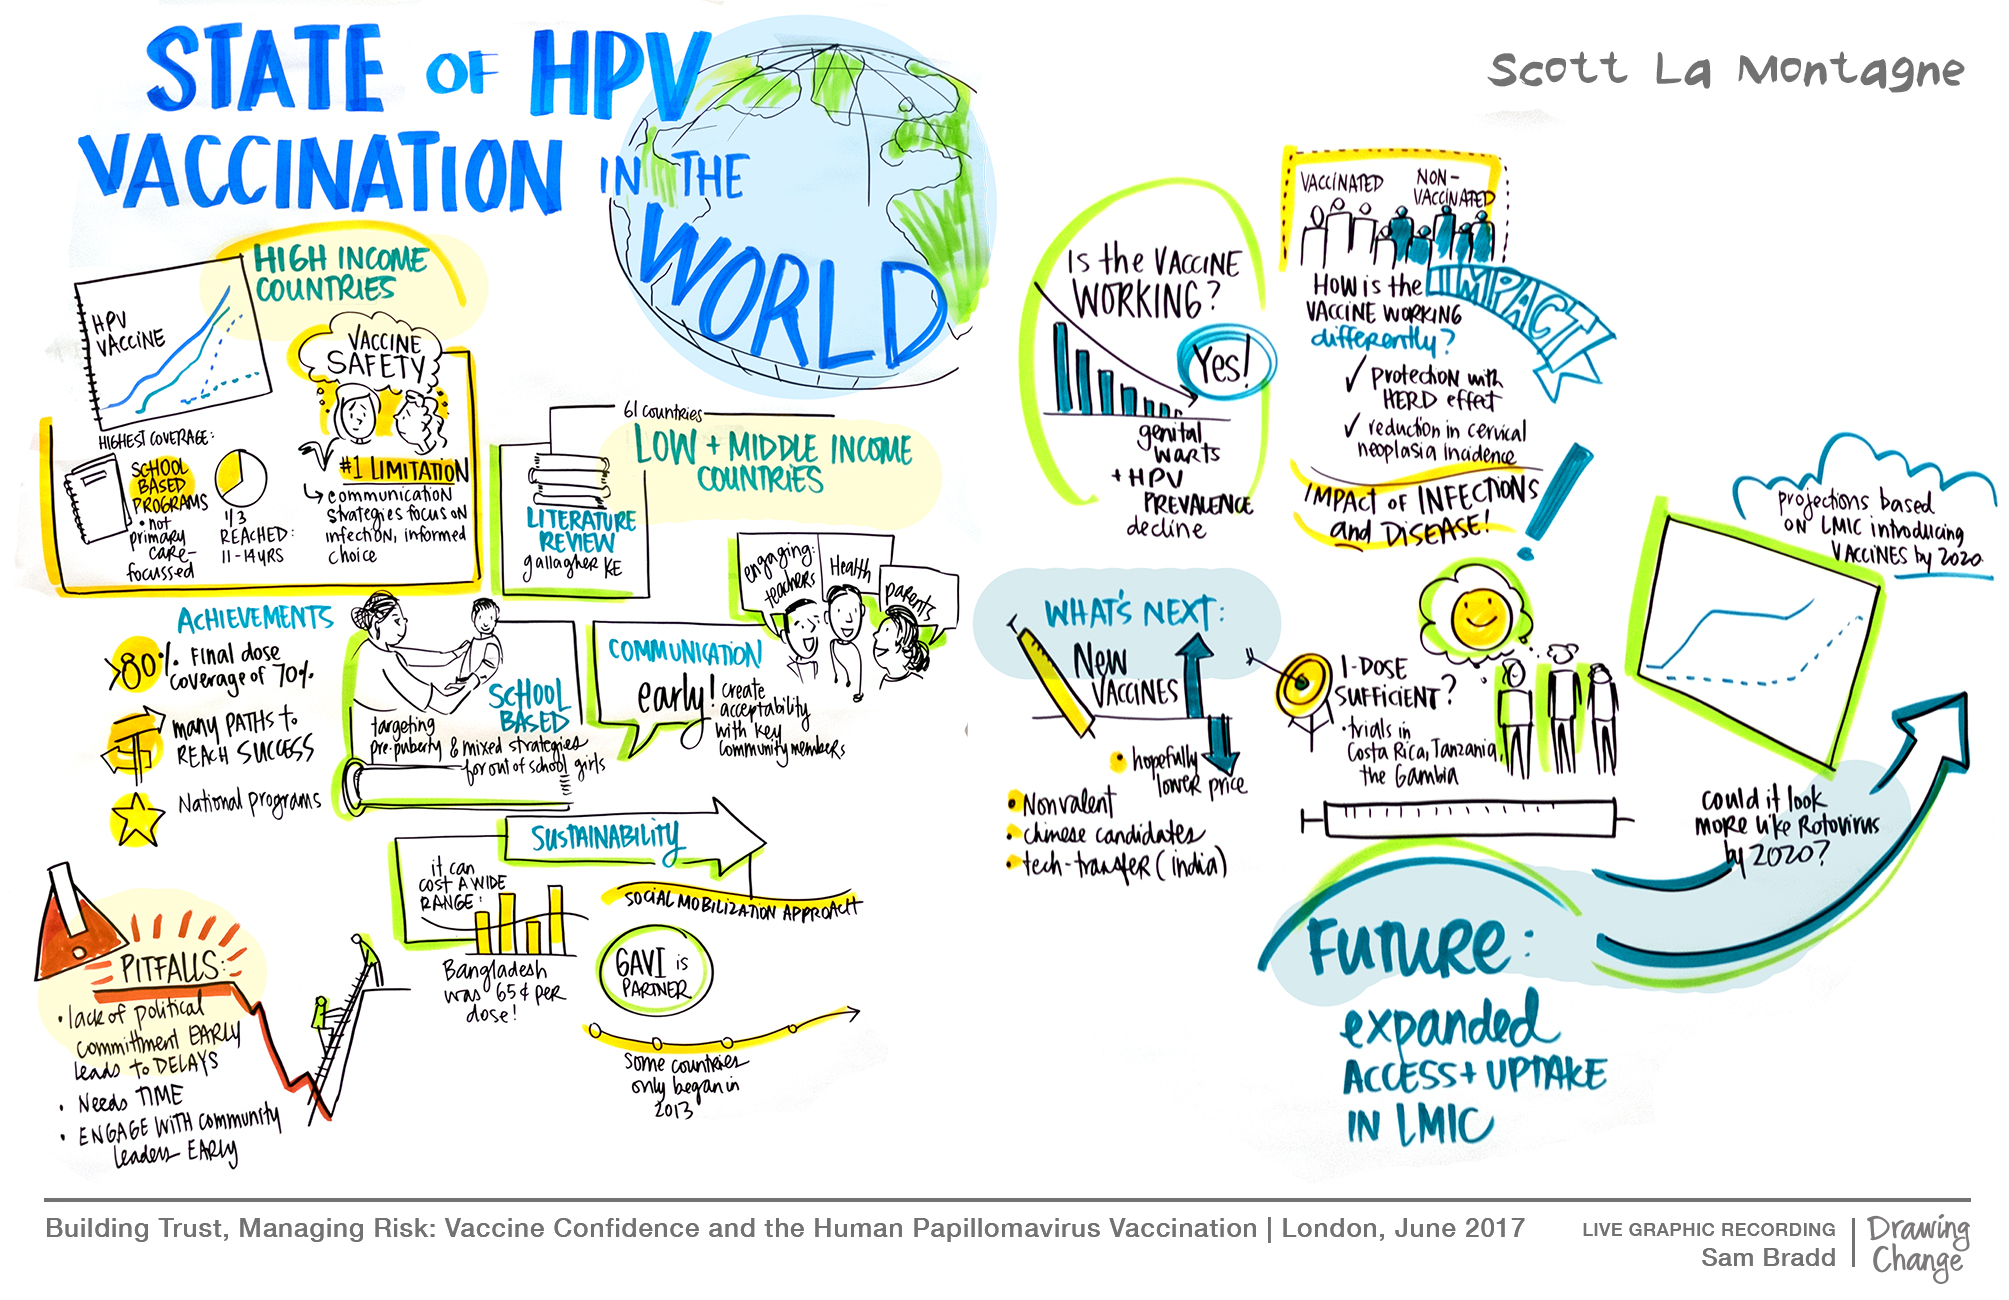 STATE OF HPV
VACCINATION IN THE
WORLD
Scott La Montagne
HIGH INCOME
COUNTRIES
HPV
VACCINE
VACCINE
SAFETY
HIGHEST COVERAGE:
SCHOOL
BASED
PROGRAMS
• not
primary
care-
focussed
1/3
REACHED:
11-14YRS
#1 LIMITATION
communication
strategies focus on
infection, informed
choice
61 countries
LOW + MIDDLE INCOME
COUNTRIES
LITERATURE
REVIEW
gallagher KE
ACHIEVEMENTS
>80% final dose
coverage of 70%
many PATHS to
REACH SUCCESS
National programs
SCHOOL
BASED
targeting
pre-puberty & mixed strategies
for out of school girls
engaging:
teachers
Health
parents
COMMUNICATION
early! create
acceptability
with key
community members
SUSTAINABILITY
it can
COST A WIDE
RANGE:
Bangladesh
was 65¢ per
dose!
SOCIAL MOBILIZATION APPROACH
GAVI is
PARTNER
Some countries
only began in
2013
PITFALLS:
• lack of political
commitment EARLY
leads to DELAYS
• Needs TIME
• ENGAGE WITH community
leaders EARLY
Is the VACCINE
WORKING?
Yes!
genital
warts
+ HPV
PREVALENCE
decline
VACCINATED
NON-
VACCINATED
How is the
VACCINE WORKING
differently?
IMPACT
✓ protection with
HERD effect
✓ reduction in cervical
neoplasia incidence
IMPACT OF INFECTIONS
and DISEASE!
!
WHAT'S NEXT:
New
VACCINES
• hopefully
lower price
• Nonvalent
• chinese candidates
• tech-transfer (india)
1-DOSE
SUFFICIENT?
• trials in
Costa Rica, Tanzania,
the Gambia
projections based
ON LMIC introducing
VACCINES by 2020
could it look
more like Rotovirus
by 2020?
FUTURE:
expanded
ACCESS + UPTAKE
IN LMIC
Building Trust, Managing Risk: Vaccine Confidence and the Human Papillomavirus Vaccination | London, June 2017
LIVE GRAPHIC RECORDING
Sam Bradd
Drawing
Change